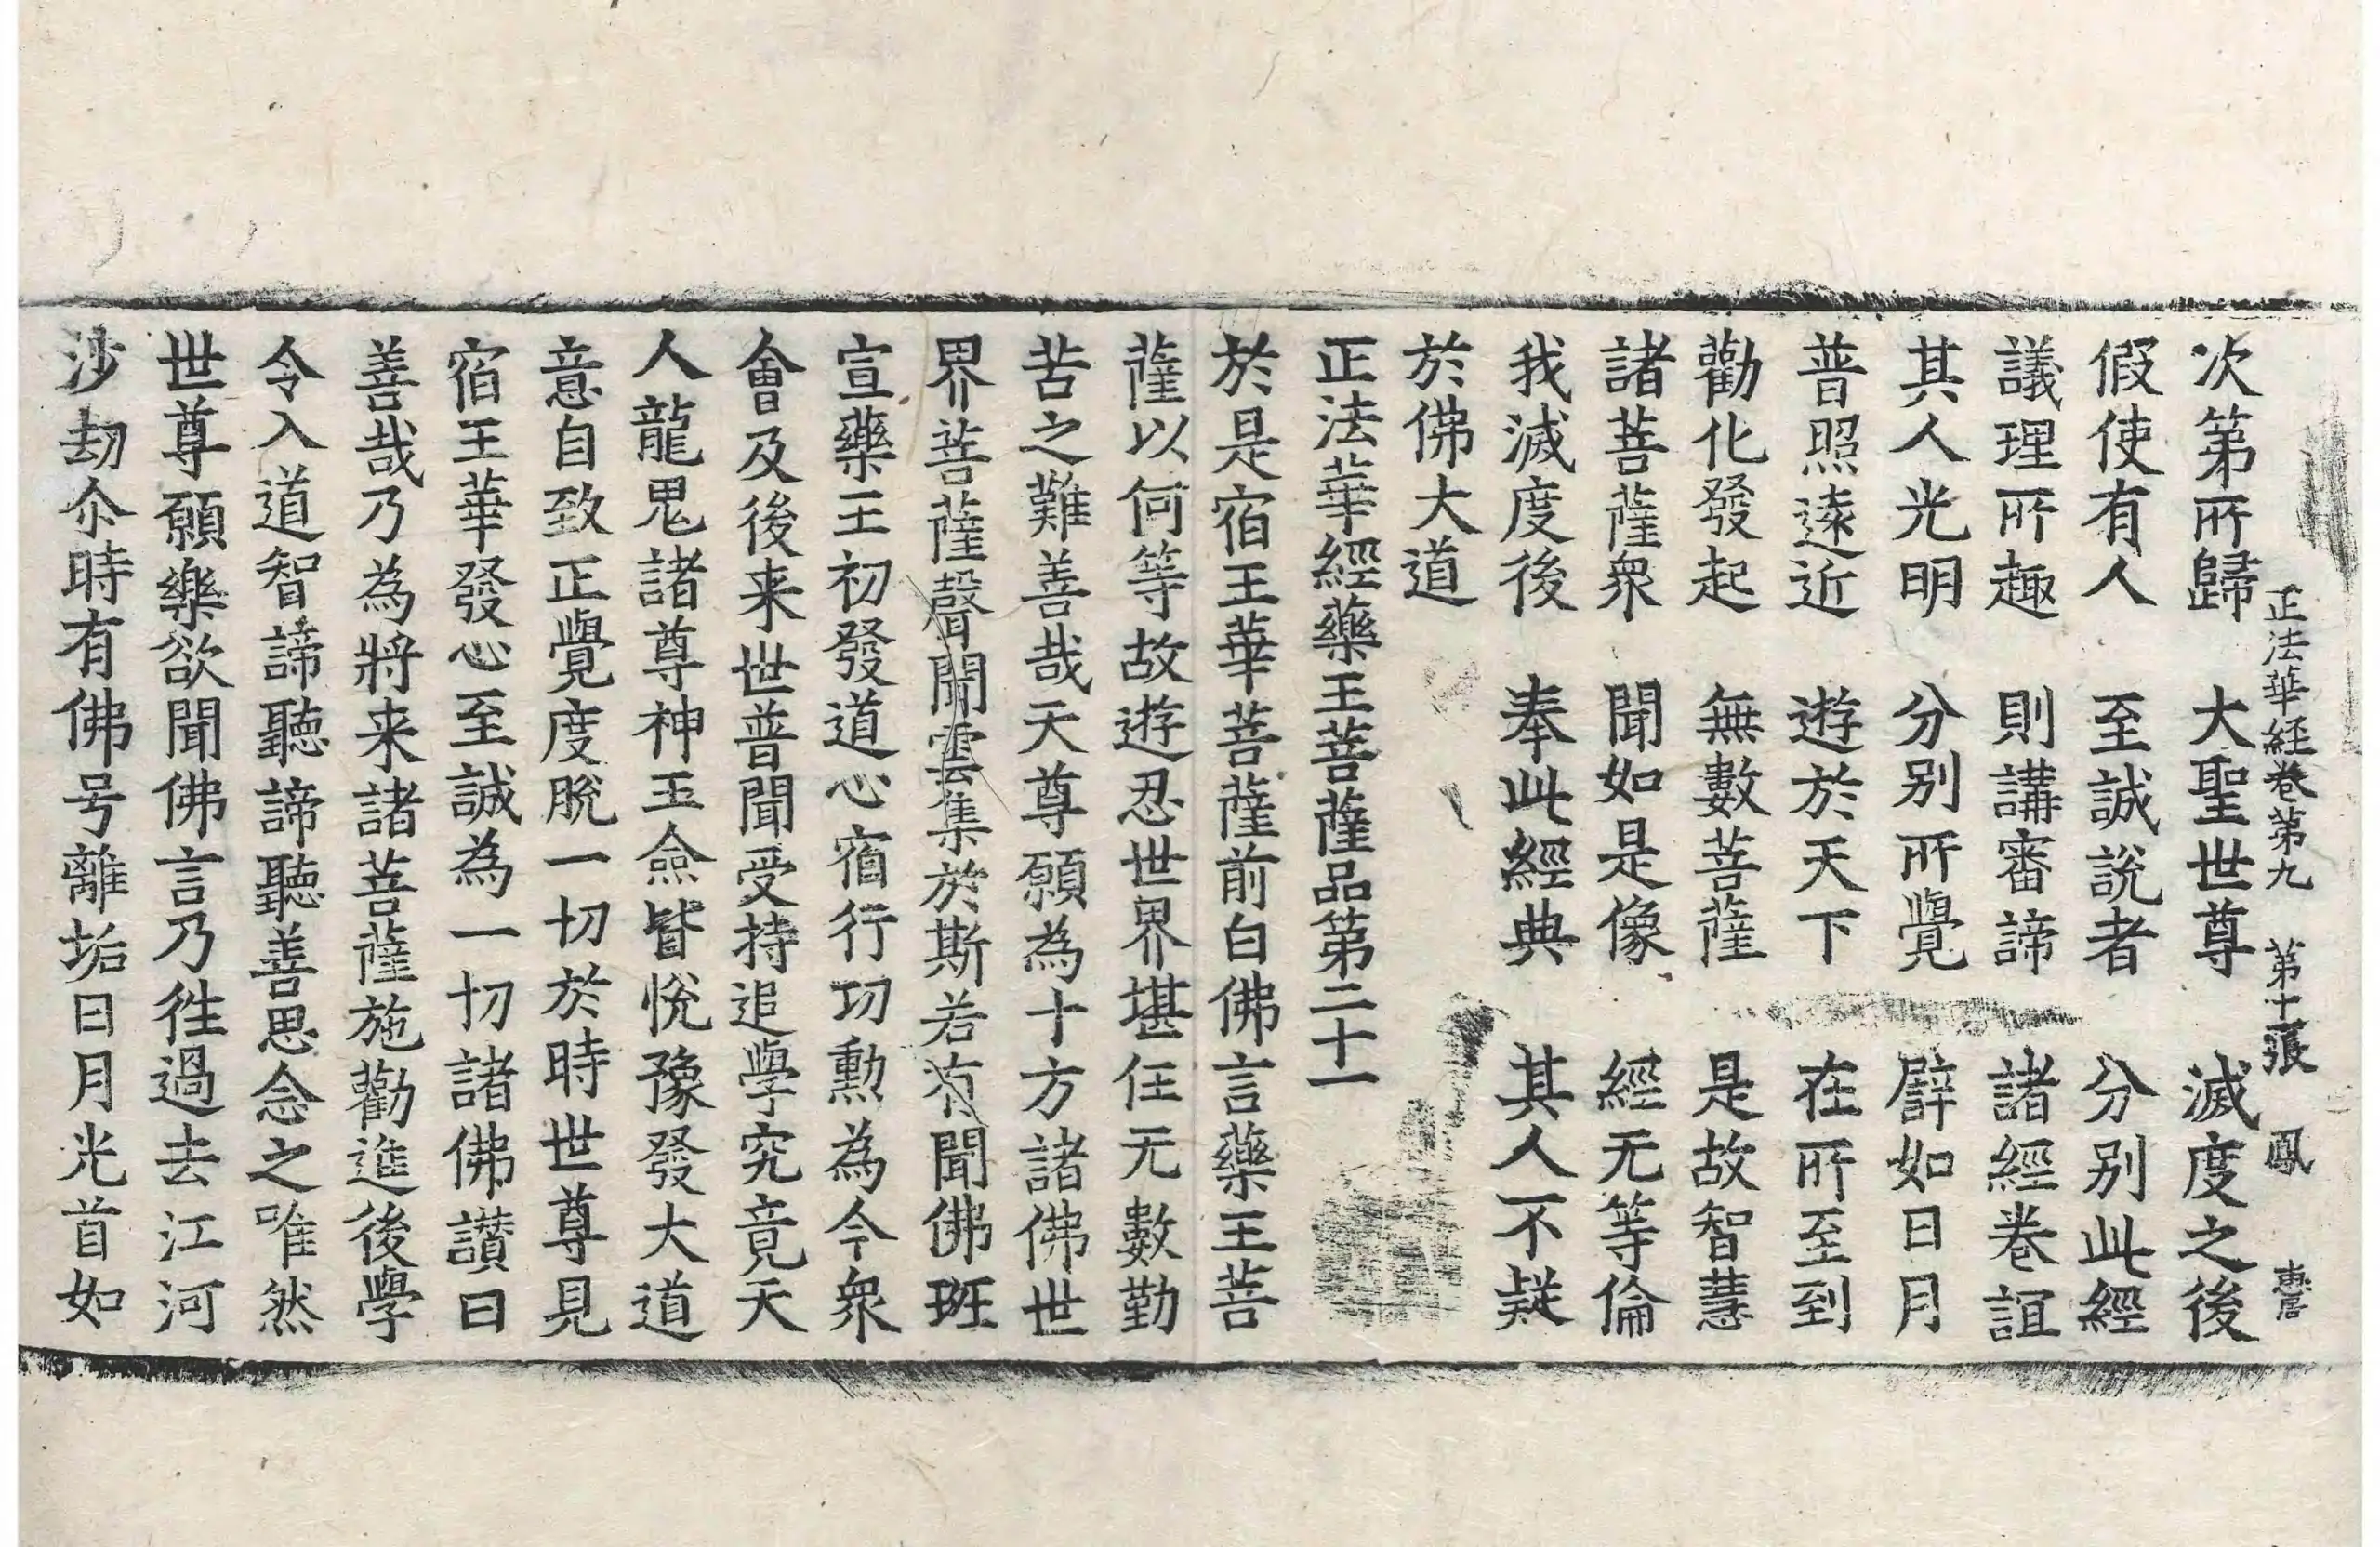 正法華経卷第九 第十張 鳳
次第所歸 大聖世尊 滅度之後
假使有人 至誠說者 分别此經
議理所趣 則講審諦 諸經卷誼
其人光明 分别所覺 譬如日月
普照遠近 遊於天下 在所至到
勸化發起 無數菩薩 是故智慧
諸菩薩衆 聞如是像 經无等倫
我滅度後 奉此經典 其人不疑
於佛大道
正法華經藥王菩薩品第二十一
於是宿王華菩薩前白佛言藥王菩
薩以何等故遊忍世界堪任无數勤
苦之難善哉天尊願為十方諸佛世
界菩薩聲聞雲集於斯若有聞佛班
宣藥王初發道心宿行功勳為今衆
會及後来世普聞受持追學究竟天
人龍鬼諸尊神王僉皆悅豫發大道
意自致正覺度脫一切於時世尊見
宿王華發心至誠為一切諸佛讃曰
善哉乃為將来諸菩薩施勸進後學
令入道智諦聽諦聽善思念之唯然
世尊願樂欲聞佛言乃徃過去江河
沙劫尒時有佛号離垢日月光首如